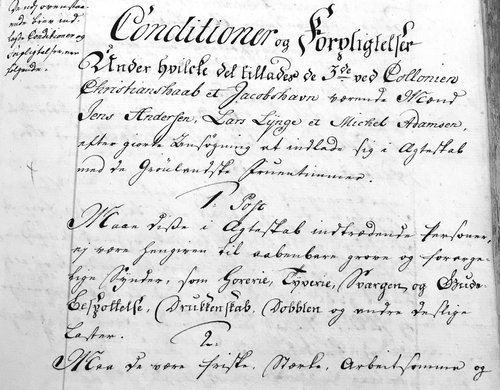 rede bier ind
Conditioner og
følgende.
Conditioner og Forpligtelser
Under hvilcke det tillades de 3de ved Collonien
Christianshaab et Jacobshavn værende Mænd
Jens Andersen, Lars Lÿnge et Michel Adamsen,
efter giorte Ansøgning at indlade sig i Ægteskab
med de Grönlandske Fruentimmer.
1. Post
Maae disse i Ægteskab indtrædende Personer,
ej være hengiven til aabenbare grove og forarge-
lige Synder, som Horerie, Tyverie, Sværgen og Guds
Bespottelse, Drukkenskab, Dobblen og andre deslige
Laster.
2.
Maa de være friske, Stærke, arbeitsomme og